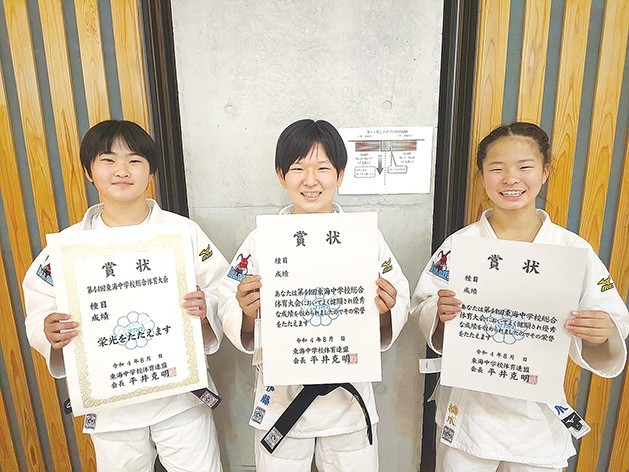 賞状
第44回東海中学校総合体育大会
種目
成績
栄光をたたえます
令和4年8月 日
東海中学校体育連盟
会長 平井克明
賞状
種目
成績
あなたは第44回東海中学校総合
体育大会においてよく健闘され優秀
な成績を収められましたのでその栄誉
をたたえます
令和4年8月 日
東海中学校体育連盟
会長 平井克明
賞状
種目
成績
あなたは第44回東海中学校総合
体育大会においてよく健闘され優秀
な成績を収められましたのでその栄誉
をたたえます
令和4年8月 日
東海中学校体育連盟
会長 平井克明